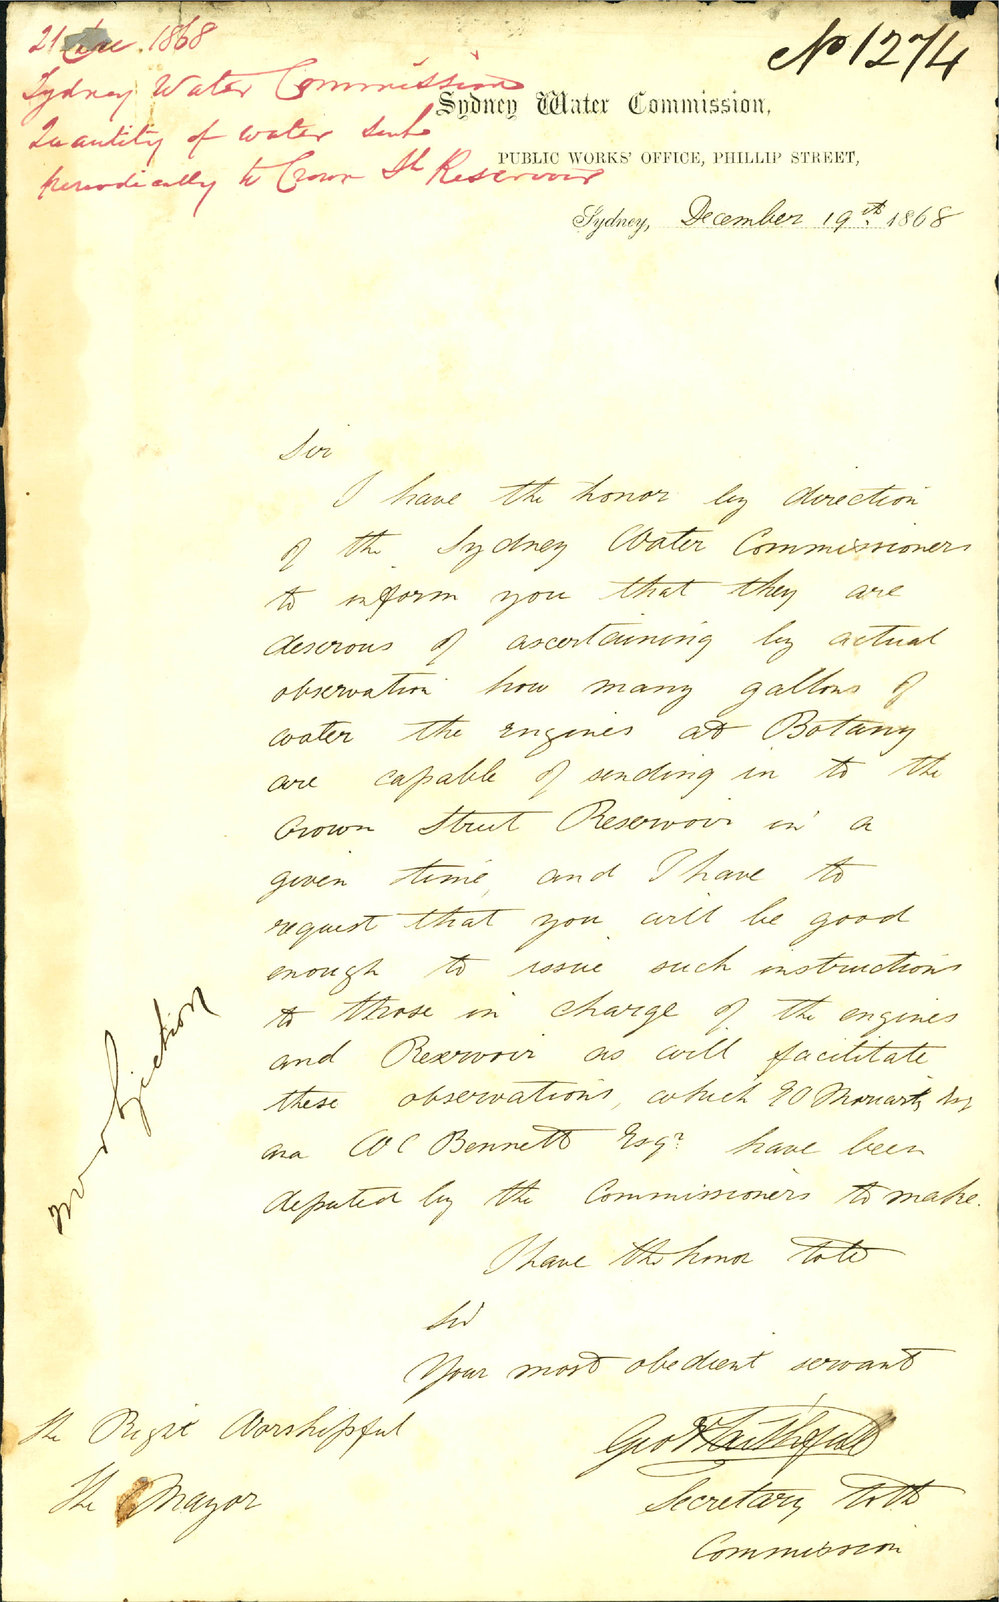 21 Dec. 1868
Sydney Water Commission
Quantity of water sent
periodically to Crown St Reservoir
No 1274
Sydney Water Commission,
PUBLIC WORKS' OFFICE, PHILLIP STREET,
Sydney, December 19th 1868
Sir
I have the honor by direction
of the Sydney Water Commissioners
to inform you that they are
desirous of ascertaining by actual
observation how many gallons of
water the engines at Botany
are capable of sending in to the
Crown Street Reservoir in a
given time, and I have to
request that you will be good
enough to issue such instructions
to those in charge of the engines
and Reservoir as will facilitate
these observations, which EO Moriarty Esq
and WC Bennett Esqr have been
deputed by the Commissioners to make.
I have the honor to be
Sir
Your most obedient servant
Geo Faithfull
Secretary to the
Commission
The Right Worshipful
The Mayor
no objection